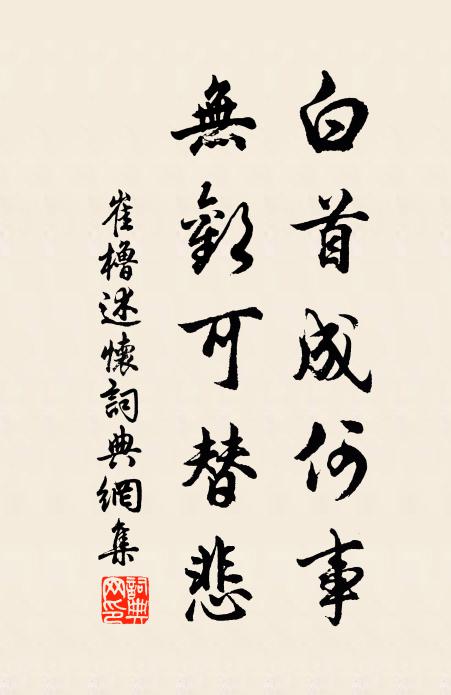 白首成何事
無歡可替悲
崔櫓述懷詞典網集
詞典網印